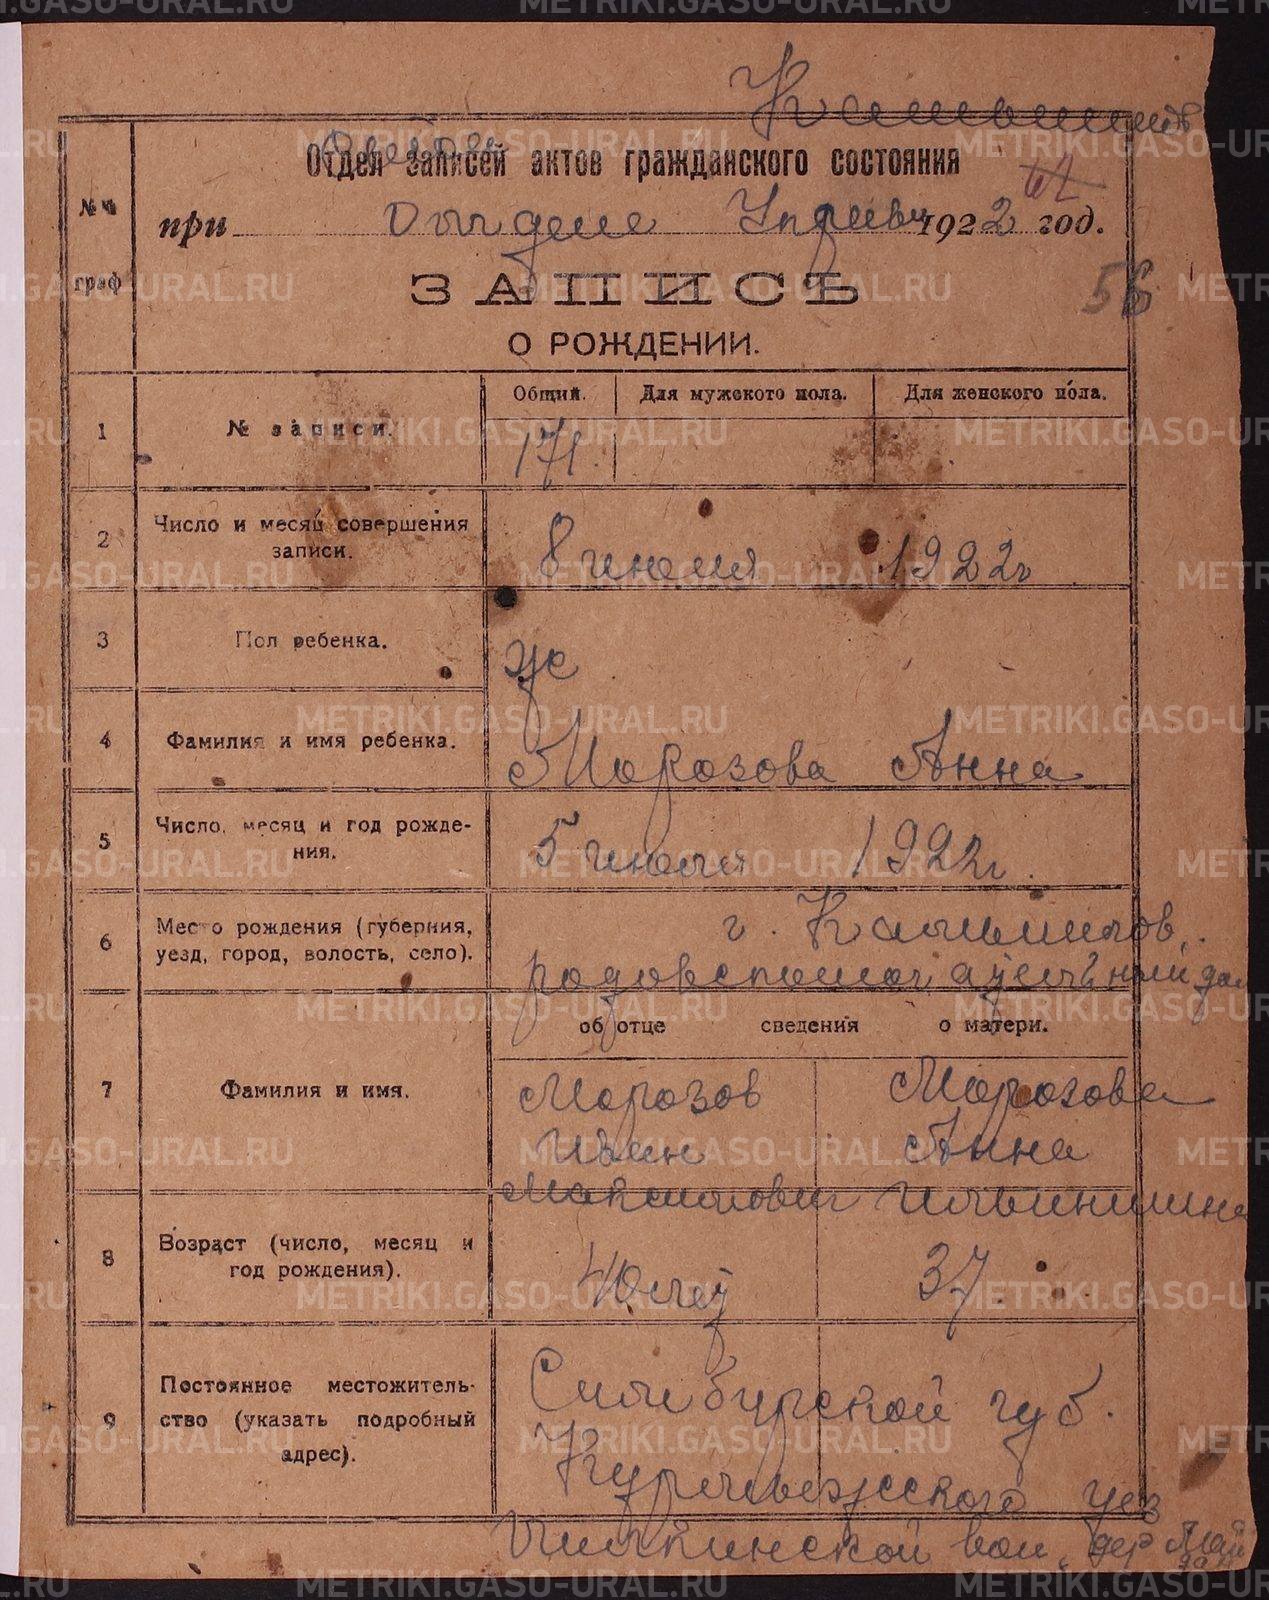 Камышлов
Отдел записей актов гражданского состояния
при Отделе Управ 1922 год.
№№ граф
ЗАПИСЬ
56
О РОЖДЕНИИ.
Общий. Для мужского пола. Для женского пола.
1 № записи. 171.
2 Число и месяц совершения записи. 8 июля 1922г
3 Пол ребенка. ж
4 Фамилия и имя ребенка. Морозова Анна
5 Число, месяц и год рождения. 5 июля 1922г.
6 Место рождения (губерния, уезд, город, волость, село). г. Камышлов,
родовспомогательный дом
об отце сведения о матери.
7 Фамилия и имя. Морозов Морозова
Иван Анна
Максимович Ильинишна
8 Возраст (число, месяц и год рождения). 40 лет 37.
9 Постоянное местожительство (указать подробный адрес). Симбирской губ.
уез
вол. дер
METRIKI.GASO-URAL.RU